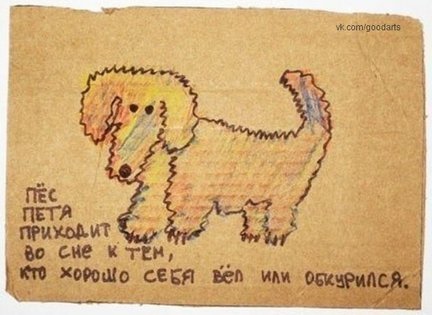 vk.com/goodarts
ПЁС
ПЕТЯ
ПРИХОДИТ
ВО СНЕ К ТЕМ,
КТО ХОРОШО СЕБЯ ВЁЛ ИЛИ ОБКУРИЛСЯ.